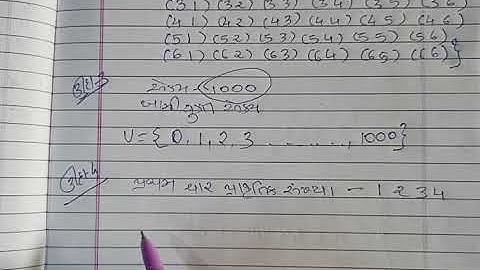 (31) (32) (33) (34) (35) (36)
(41) (42) (43) (44) (45) (46)
(51) (52) (53) (54) (55) (56)
(61) (62) (63) (64) (65) (66)}
1000
U={0, 1, 2, 3 ........, 1000}
પ્રથમ ચાર પ્રાકૃતિક સંખ્યા - 1 2 3 4